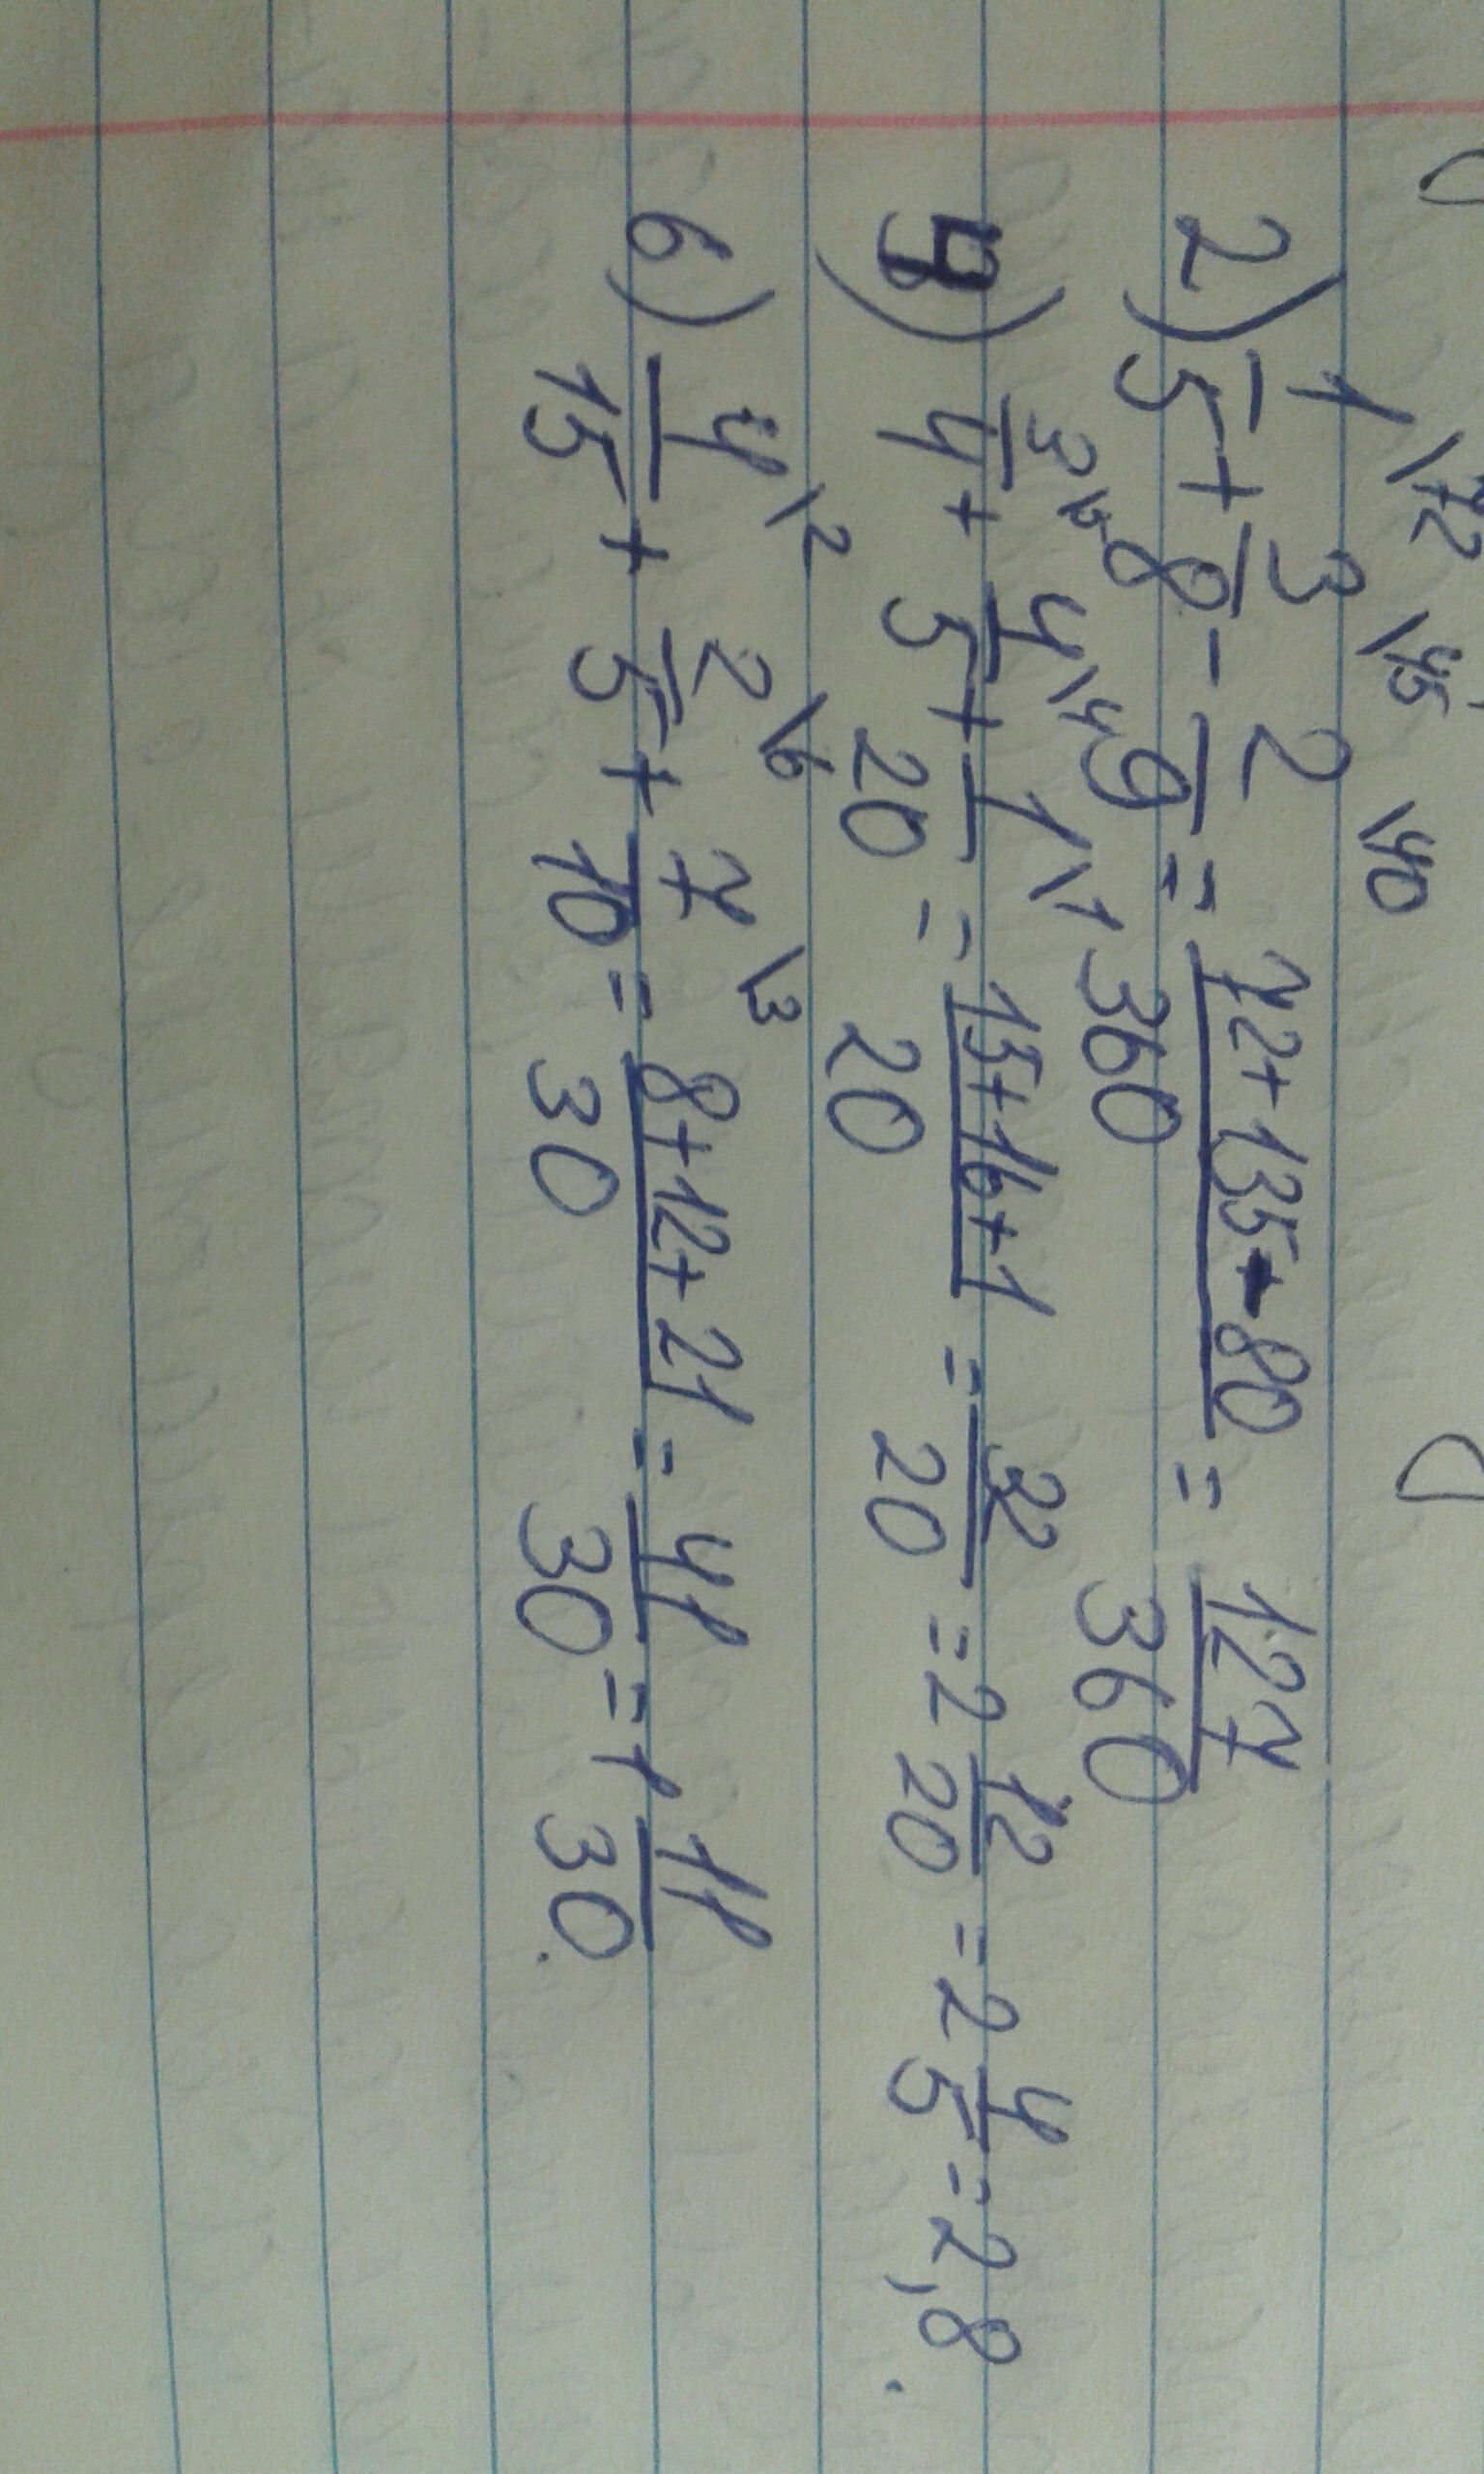 2) 1/5 \72 + 3/8 \45 - 2/9 \40 = 72+135-80/360 = 127/360
4) 3/4 \5 + 4/5 \4 + 1/20 \1 = 15+16+1/20 = 32/20 = 2 12/20 = 2 4/5 = 2,8.
6) 4/15 \2 + 2/5 \6 + 7/10 \3 = 8+12+21/30 = 41/30 = 1 11/30.